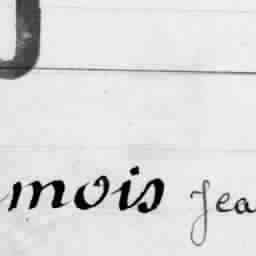 mois Jea